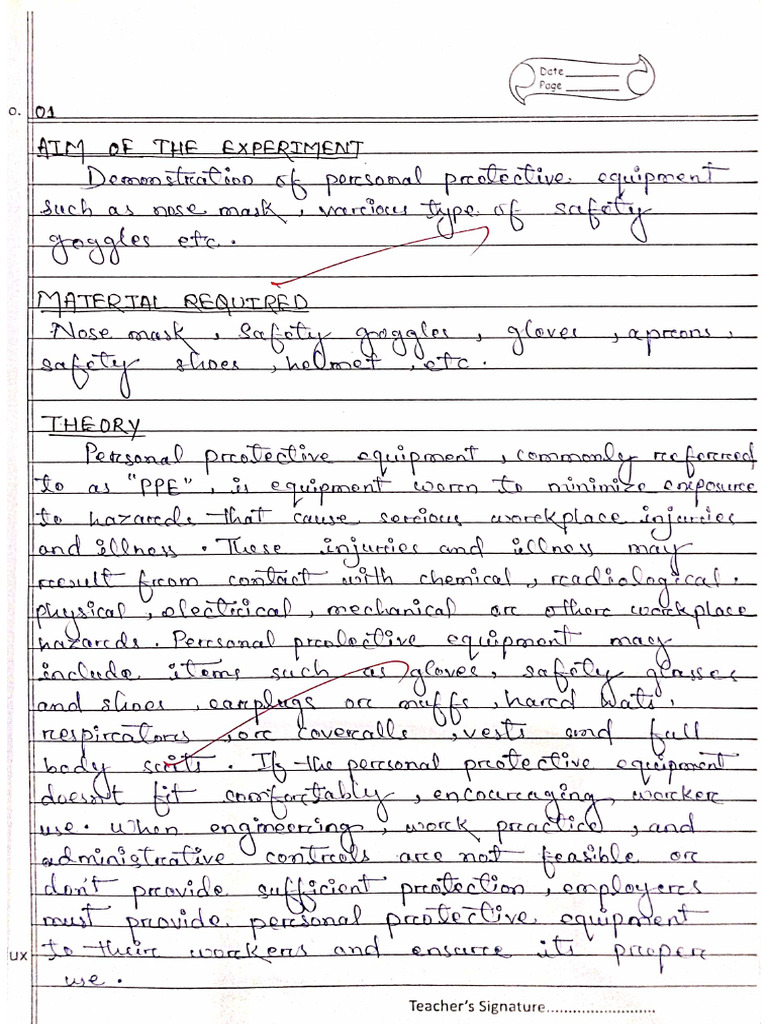 Date
Page
o. 01
AIM OF THE EXPERIMENT
Demonstration of personal protective equipment
such as nose mask, various type of safety
goggles etc.
MATERIAL REQUIRED
Nose mask, Safety goggles, gloves, aprons,
safety shoes, helmet, etc.
THEORY
Personal protective equipment, commonly referred
to as "PPE", is equipment worn to minimize exposure
to hazards that cause serious workplace injuries
and illness. These injuries and illness may
result from contact with chemical, radiological.
physical, electrical, mechanical or other workplace
hazards. Personal protective equipment may
include items such as gloves, safety glasses
and shoes, earplugs or muffs, hard hats,
respirators, or coveralls, vests and full
body suits. If the personal protective equipment
doesn't fit comfortably, encouraging, worker
use. When engineering, work practice, and
administrative controls are not feasible or
don't provide sufficient protection, employers
must provide personal protective equipment
to their workers and ensure its proper
use.
UX
Teacher's Signature...........................